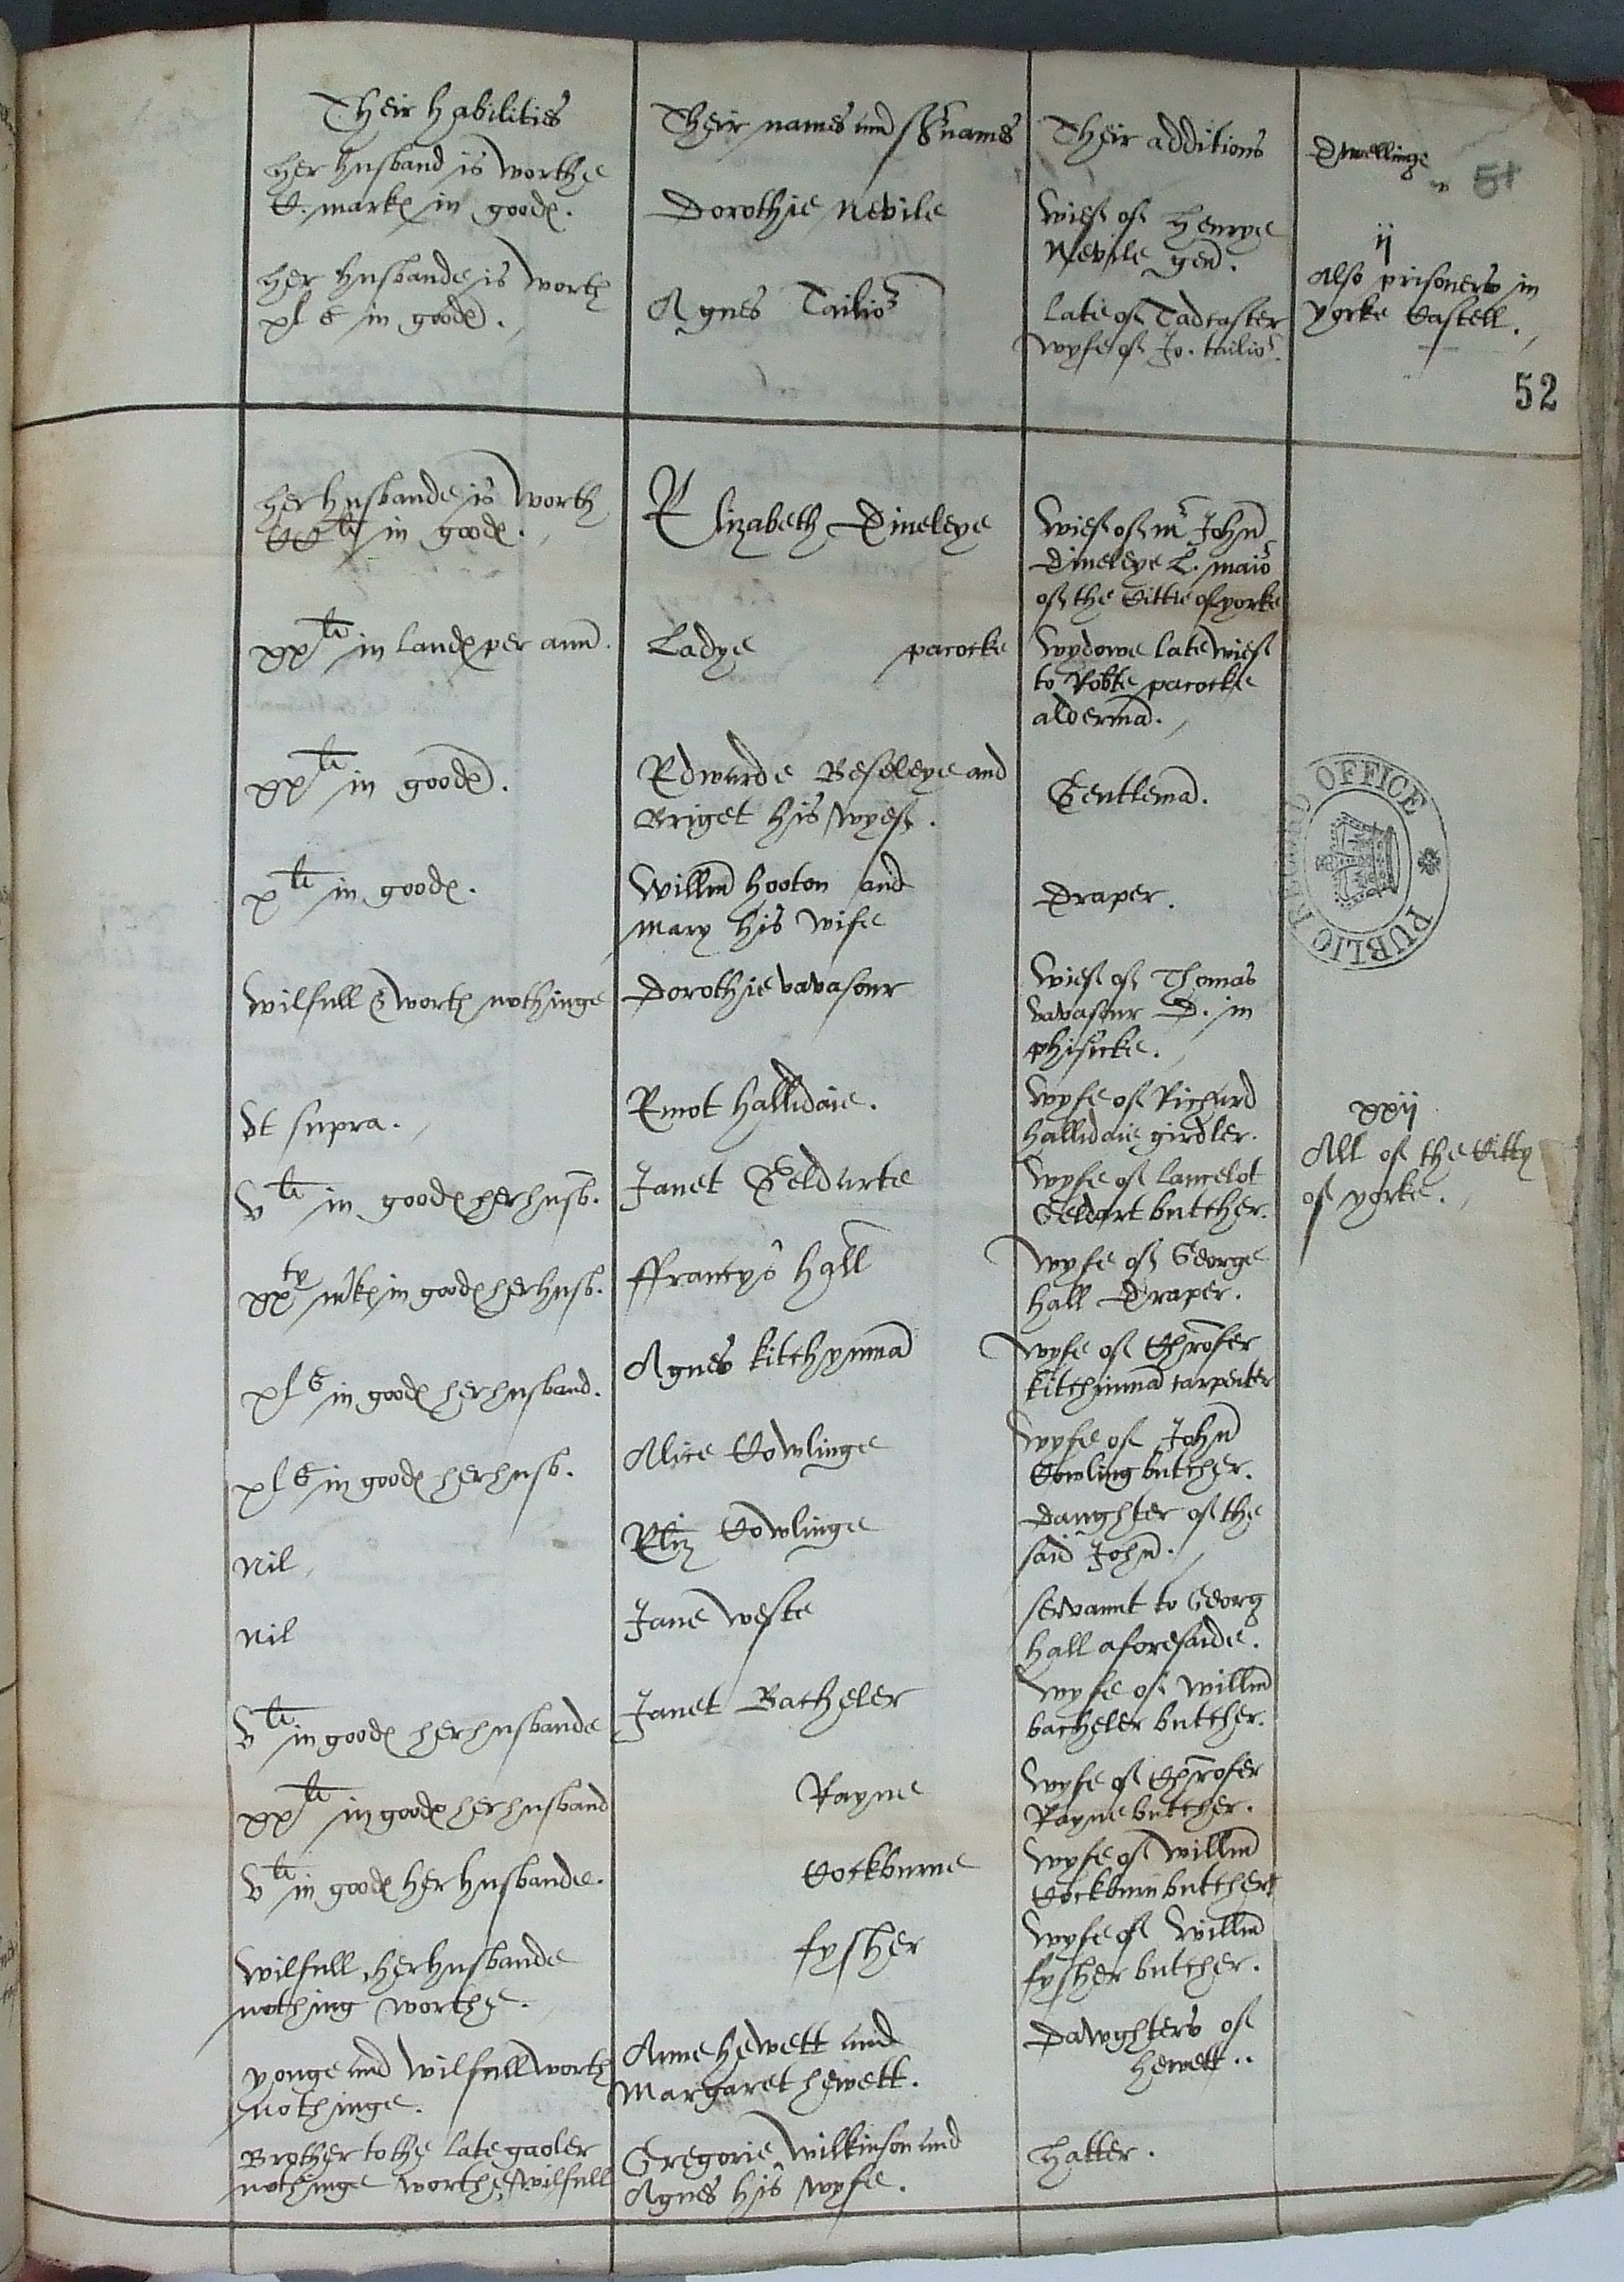 Their habilities
Their names and s[ur]names
Their additions
Dwellinge
51
her husband is worthe
C. markes in goodes.
Dorothie Nevile
wief of Henrye
Nevile gen.
her husbande is worth
xl s in goodes.
Agnes Tailior
late of Tadcaster
wyfe of Jo. tailior.
ij
Also prisoners in
yorke Castell.
52
her husbande is worth
CC li in goodes.
Elizabeth Dineleye
wief of mr John
Dineleye L. maior
of the Cittie of yorke
xx li in landes per ann.
Ladye pacocke
wydowe late wief
to Robte pacocke
alderman.
xx li in goodes.
Edwarde Beseleye and
Briget his wyef.
Gentleman.
x li in goodes.
Willm hooton and
mary his wife
Draper.
wilfull & worth nothinge
Dorothie vavasour
wief of Thomas
vavasour D. in
phisicke.
Vt supra.
Emot Hallidaie.
wyfe of Richard
hallidaie girdler.
V li in goodes her husb.
Janet Geldarte
wyfe of lancelot
Geldart butcher.
xx ty mkes in goodes her husb.
ffrancys Hall
wyfe of George
hall Draper.
xl s in goodes her husband.
Agnes kitchynman
wyfe of Chrofer
kitchinman carpenter
xl s in goodes her husb.
Alice Cowlinge
wyfe of John
Cowling butcher.
Nil
Eliz Cowlinge
Daughter of the
said John.
Nil
Jane weste
servannt to Georg
hall aforesaide.
V li in goodes her husbande
Janet Bacheler
wyfe of willm
bacheler butcher.
xx li in goodes her husband
Rayne
wyfe of Chrofer
Rayne butcher.
V li in goodes her husbande.
Cockburne
wyfe of willm
Cockburn butcher
wilfull, her husbande
nothing worthe.
fysher
wyfe of willm
fysher butcher.
yonge and wilfull worth
nothinge.
Anne hewett and
Margaret hewett.
Dawghters of
hewett..
Brother to the late gaoler
nothinge worthe, wilfull
Gregorie wilkinson and
Agnes his wyfe.
hatter.
xxij
All of the Citty
of yorke.
PUBLIC RECORD OFFICE